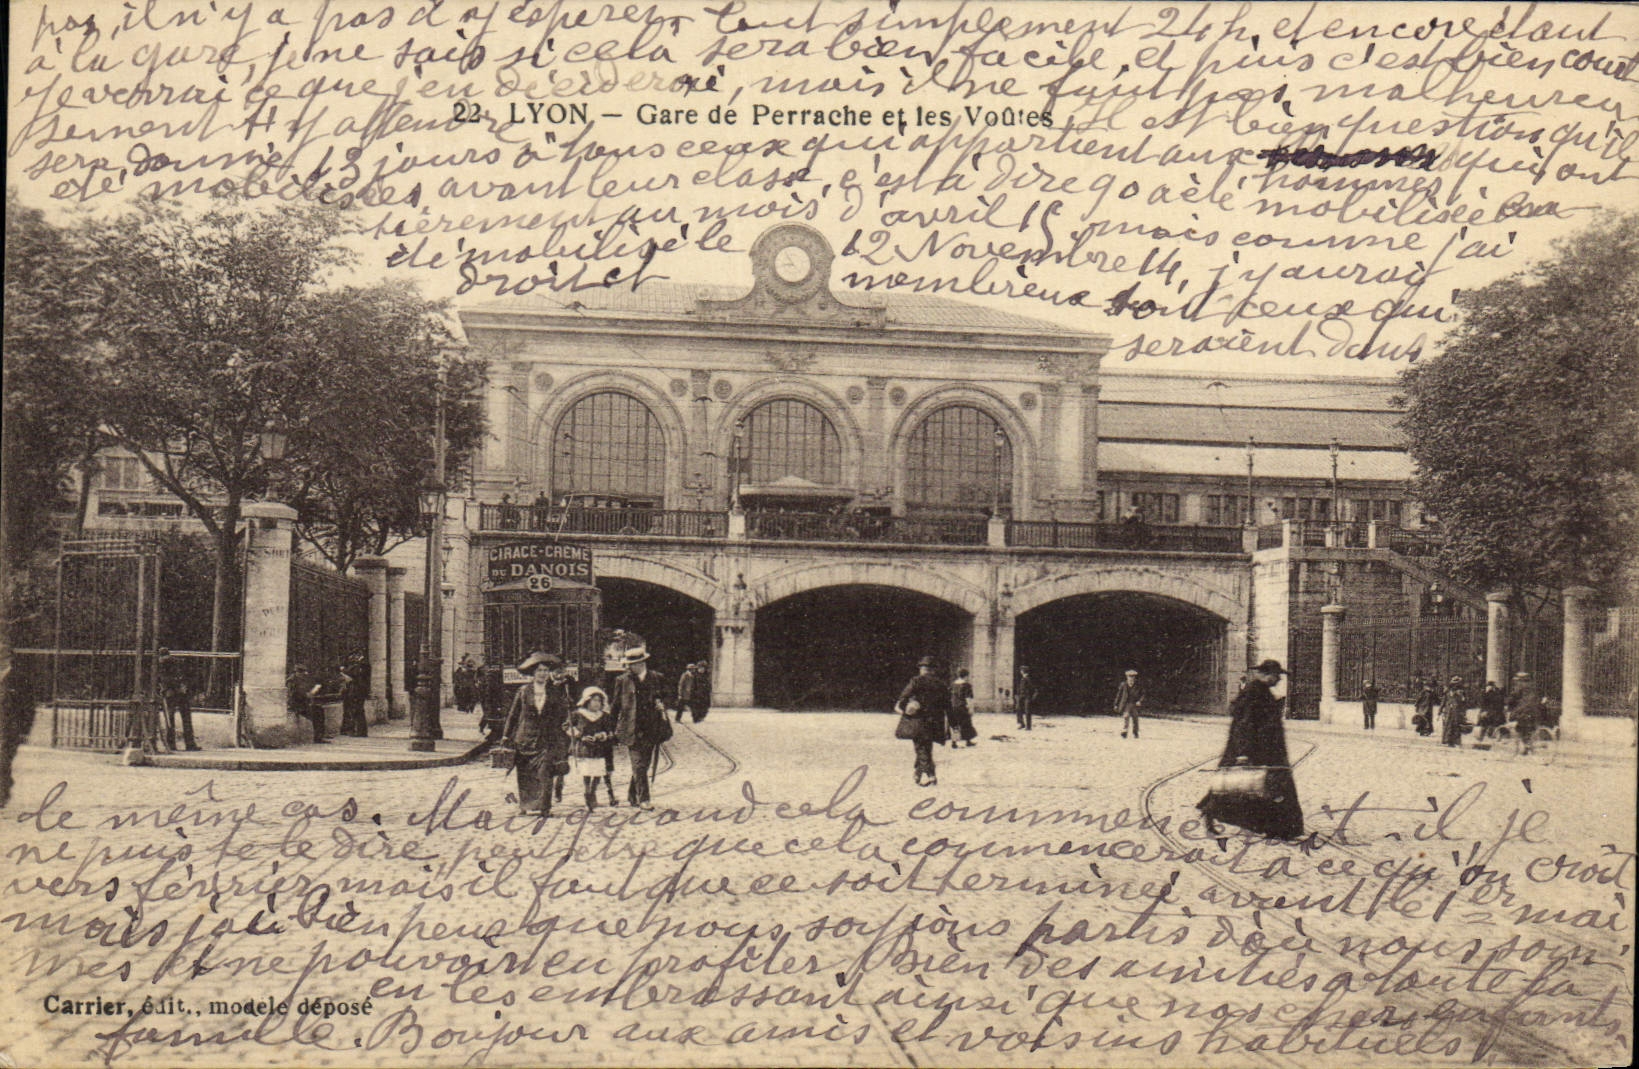 pas, il n'y a pas d'y espérer, tout simplement 24 h, et encore étant
à la gare, je ne sais si cela sera bien facile, et puis c'est bien court
Je verrai ce que j'en déciderai, mais il ne faut pas malheureu
22 LYON — Gare de Perrache et les Voûtes
sement s'y attendre Il est bien question qu'il
sera donné 13 jours à tous ceux qui appartient aux hommes qui ont
été mobilisées, avant leur class, c'est à dire 90 a été mobilisée
tièrement au mois d'avril 15, mais comme j'ai
été mobilisé le 12 Novembre 14, j'y aurai
droit et nombreux sont ceux qui
seraient dans
CIRAGE-CRÈME
DU DANOIS
26
le même cas. Mais quand cela commencerait-il, je
ne puis te le dire, peut être que cela commencerait à ce qu'on croit
vers février, mais il faut que ce soit terminé avant le 1er mai
mais j'ai bien peur que nous soyions partis d'où nous som
mes et ne pouvoir en profiter. Bien des amitiés a toute la
en les embrassant ainsi que nos chers enfants.
Carrier, édit., modèle déposé
famille. Bonjour aux amis et voisins habituels